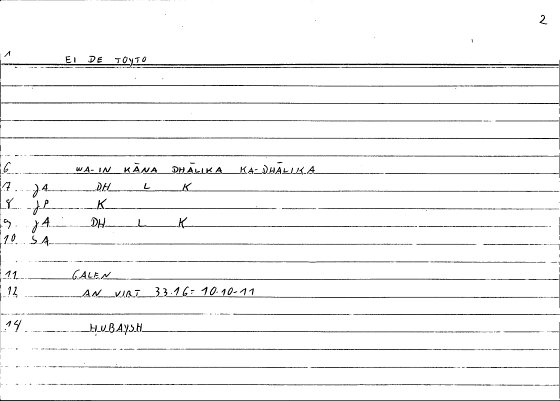 2
1 EI DE TOYTO
6 WA-IN KĀNA DHĀLIKA KA-DHĀLIKA
7 JA DH L K
8 JP K
9 JA DH L K
10 SA
11 GALEN
12 AN VIRT 33.16 = 10.10-11
14 HUBAYSH